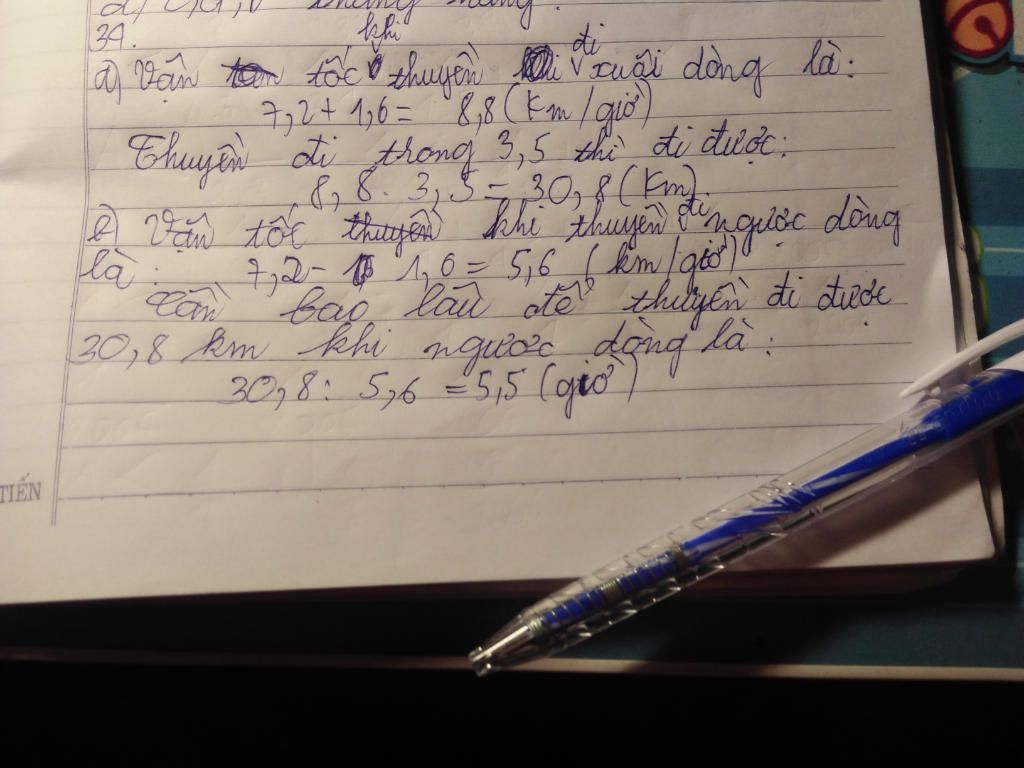 34.
a) Vận tốc khi thuyền đi xuôi dòng là:
7,2 + 1,6 = 8,8 (km/giờ)
Thuyền đi trong 3,5 thì đi được:
8,8. 3,5 = 30,8 (Km).
b) Vận tốc khi thuyền đi ngược dòng
là: 7,2 - 1,6 = 5,6 (km/giờ)
Cần bao lâu để thuyền đi được
30,8 km khi ngược dòng là:
30,8 : 5,6 = 5,5 (giờ)
TIẾN